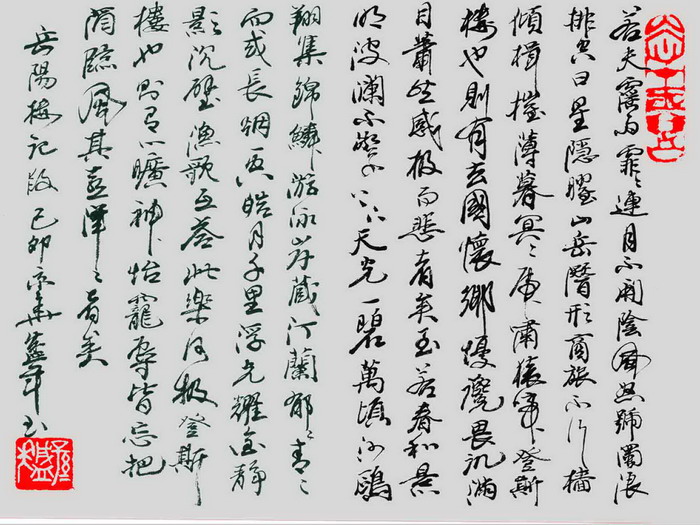 若夫霪雨霏々連月不開陰風怒號濁浪
排空日星隱曜山岳潛形商旅不行檣
傾楫摧薄暮冥々虎嘯猿啼登斯
樓也則有去國懷鄉憂讒畏譏滿
目蕭然感極而悲者矣至若春和景
明波瀾不驚上下天光一碧萬頃沙鷗
翔集錦鱗游泳岸汀蘭郁々青々
而或長烟一空皓月千里浮光耀金靜
影沉璧漁歌互答此樂何極登斯
樓也則有心曠神怡寵辱皆忘把
酒臨風其喜洋々者矣
岳陽樓記段己卯年書